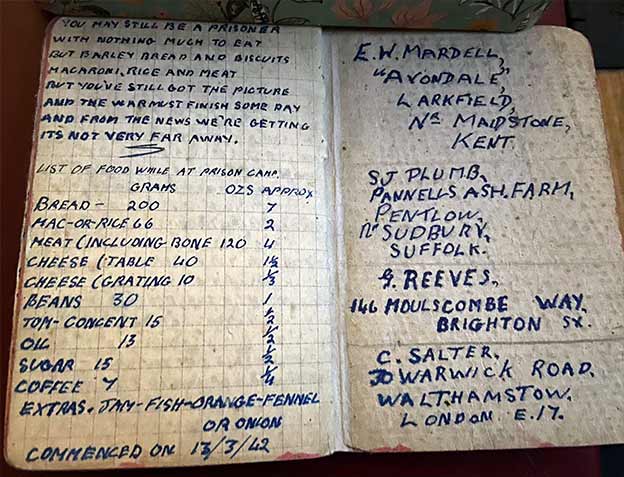 YOU MAY STILL BE A PRISONER
WITH NOTHING MUCH TO EAT
BUT BARLEY BREAD AND BISCUITS
MACARONI, RICE AND MEAT
BUT YOU'VE STILL GOT THE PICTURE
AND THE WAR MUST FINISH SOME DAY
AND FROM THE NEWS WE'RE GETTING
IT'S NOT VERY FAR AWAY.
LIST OF FOOD WHILE AT PRISON CAMP.
GRAMS OZS APPROX
BREAD - 200 7
MAC-OR-RICE 66 2
MEAT (INCLUDING BONE 120 4
CHEESE (TABLE 40 1½
CHEESE (GRATING 10 ⅓
BEANS 30 1
TOM-CONCENT 15 ½
OIL 13 ½
SUGAR 15 ½
COFFEE 7 ¼
EXTRAS. JAM-FISH-ORANGE-FENNEL
OR ONION
COMMENCED ON 13/3/42
E.W. MARDELL,
"AVONDALE,"
LARKFIELD,
NR MAIDSTONE,
KENT.
SJ PLUMB,
PANNELLS ASH. FARM,
PENTLOW,
NR SUDBURY,
SUFFOLK.
G. REEVES,
146 MOULSCOMBE WAY,
BRIGHTON SX.
C. SALTER.
30 WARWICK ROAD.
WALTHAMSTOW.
LONDON E.17.